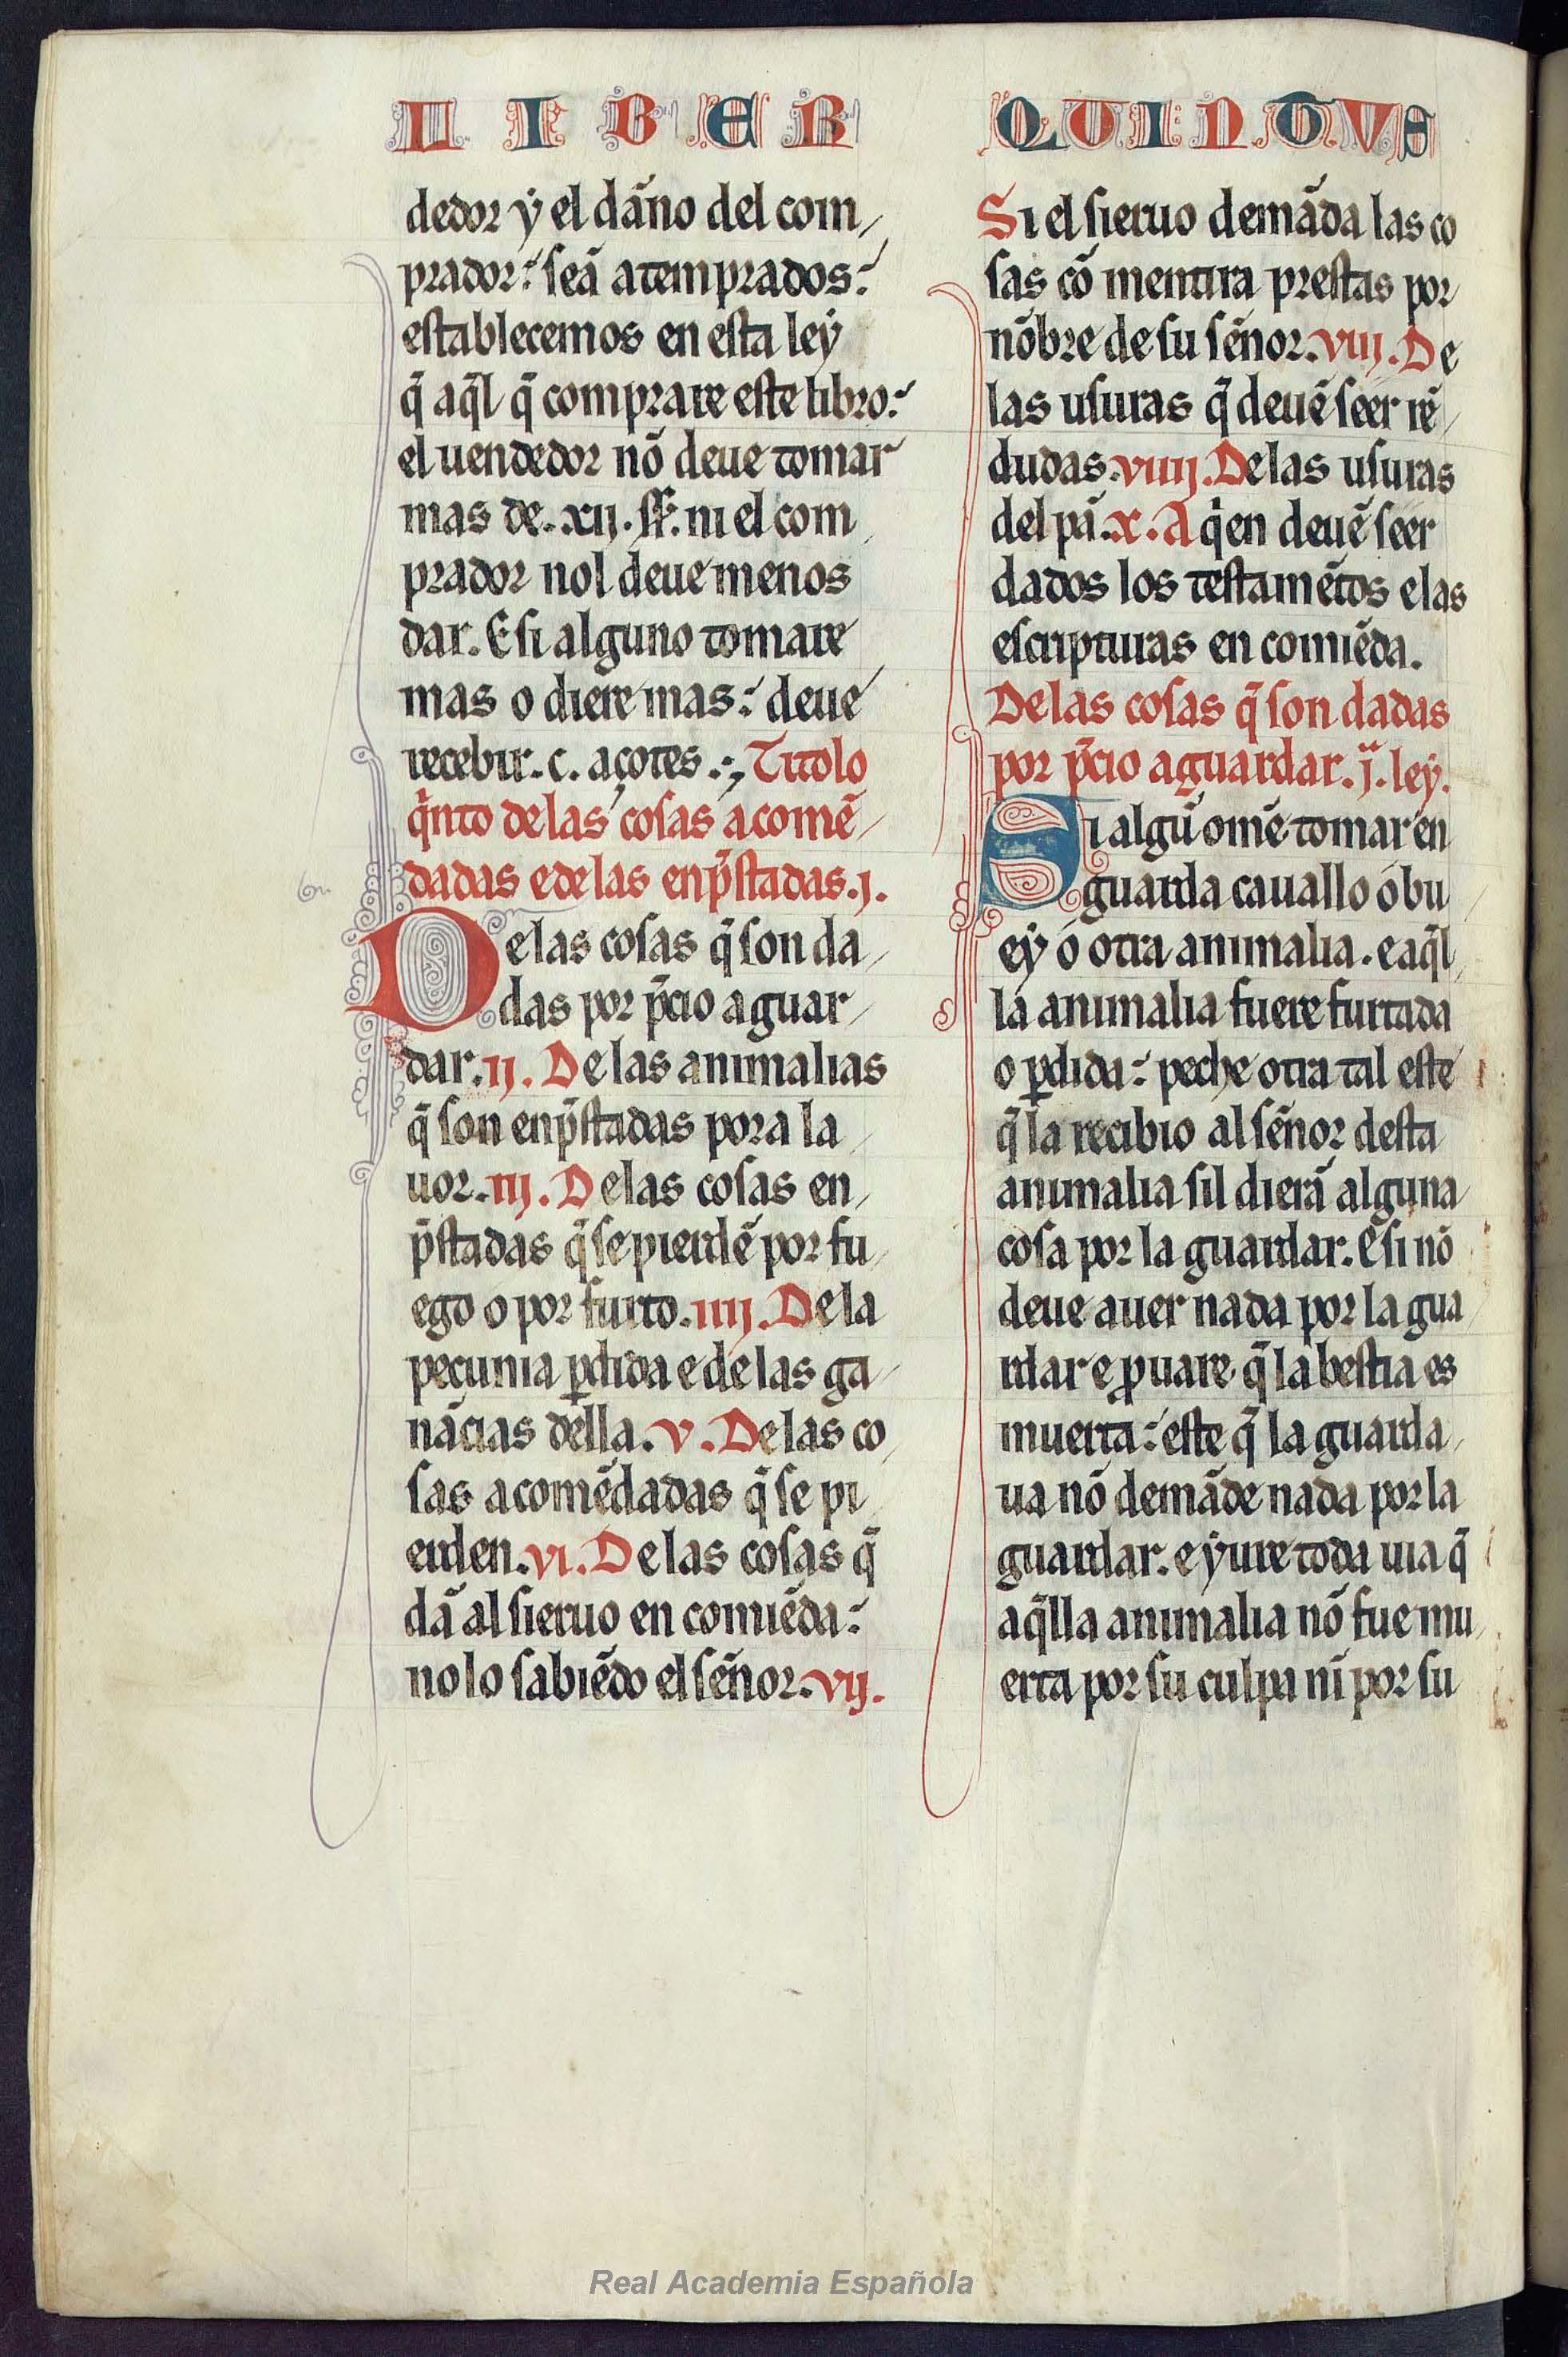 LIBER QUINTUS
dedor ẏ el dãno del com
prador: seã atemprados:
establecemos en esta leẏ
q̃ aq̃l q̃ comprare este libro:
el uendedor nõ deue tomar
mas de. xij. ss̃. ni el com
prador nol deue menos
dar. E si alguno tomare
mas o diere mas: deue
recebir. c. açotes. Titolo
q̃nto delas cosas acomẽ
dadas e delas enp̃stadas. j.
De las cosas q̃ son da
das por p̃cio aguar
dar. ij. De las animalias
q̃ son enp̃stadas pora la
uor. iij. De las cosas en
p̃stadas q̃ se pierdẽ por fu
ego o por furto. iiij. De la
pecunia ꝑdida e de las ga
nãcias della. v. De las co
sas acomẽdadas q̃ se pi
erden. vi. De las cosas q̃
dã al sieruo en comiẽda:
no lo sabiẽdo el sẽnor. vij.
Si el sieruo demãda las co
sas cõ mentira prestas por
nõbre de su sẽnor. viij. De
las usuras q̃ deuẽ seer rẽ
dudas. viiij. De las usuras
del pã. x. A q̃en deuẽ seer
dados los testamẽtos e las
escripturas en comiẽda.
De las cosas q̃ son dadas
por p̃cio aguardar. j. leẏ.
Si algũ omẽ tomar en
guarda cauallo ó bu
eẏ ó otra animalia. e aq̃l
la animalia fuere furtada
o ꝑdida: peche otra tal este
q̃ la recibio al sẽnor desta
animalia sil dierã alguna
cosa por la guardar. E si nõ
deue auer nada por la gua
rdar e ꝓuare q̃ la bestia es
muerta: este q̃ la guarda
ua nõ demãde nada por la
guardar. e ẏure toda uia q̃
aq̃lla animalia nõ fue mu
erta por su culpa nĩ por su
Real Academia Española